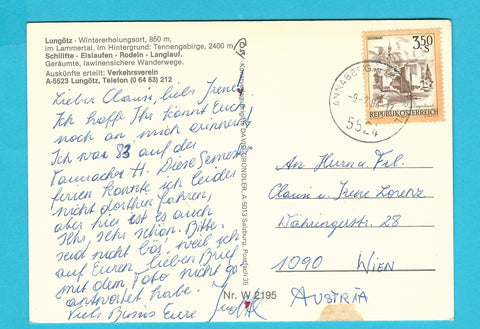 Lungötz · Wintererholungsort, 850 m,
im Lammertal. Im Hintergrund: Tennengebirge, 2400 m
Schilifte · Eislaufen · Rodeln · Langlauf.
Geräumte, lawinensichere Wanderwege.
Auskünfte erteilt: Verkehrsverein
A-5523 Lungötz, Telefon (0 64 63) 212
Lieber Clausi, liebe Irene!
Ich hoffe Ihr könnt Euch
noch an mich erinnern,
Ich war 83 auf der
Tauracher H. Diese Semester
ferien konnte ich leider
nicht dorthin fahren,
aber hier ist es auch
sehr, sehr schön. Bitte
seid nicht bös, weil ich
auf Euren lieben Brief
mit dem Foto nicht ge
antwortet habe.
Viele Bussis Eure
DAVID GRÜNDLER, A-5013 Salzburg, Postfach 35
Nr. W 2195
3.50
S
REPUBLIK ÖSTERREICH
ANNABERG
5524
An Herrn u. Frl.
Clausi u. Irene Lorenz
Währingerstr. 28
1090 Wien
AUSTRIA